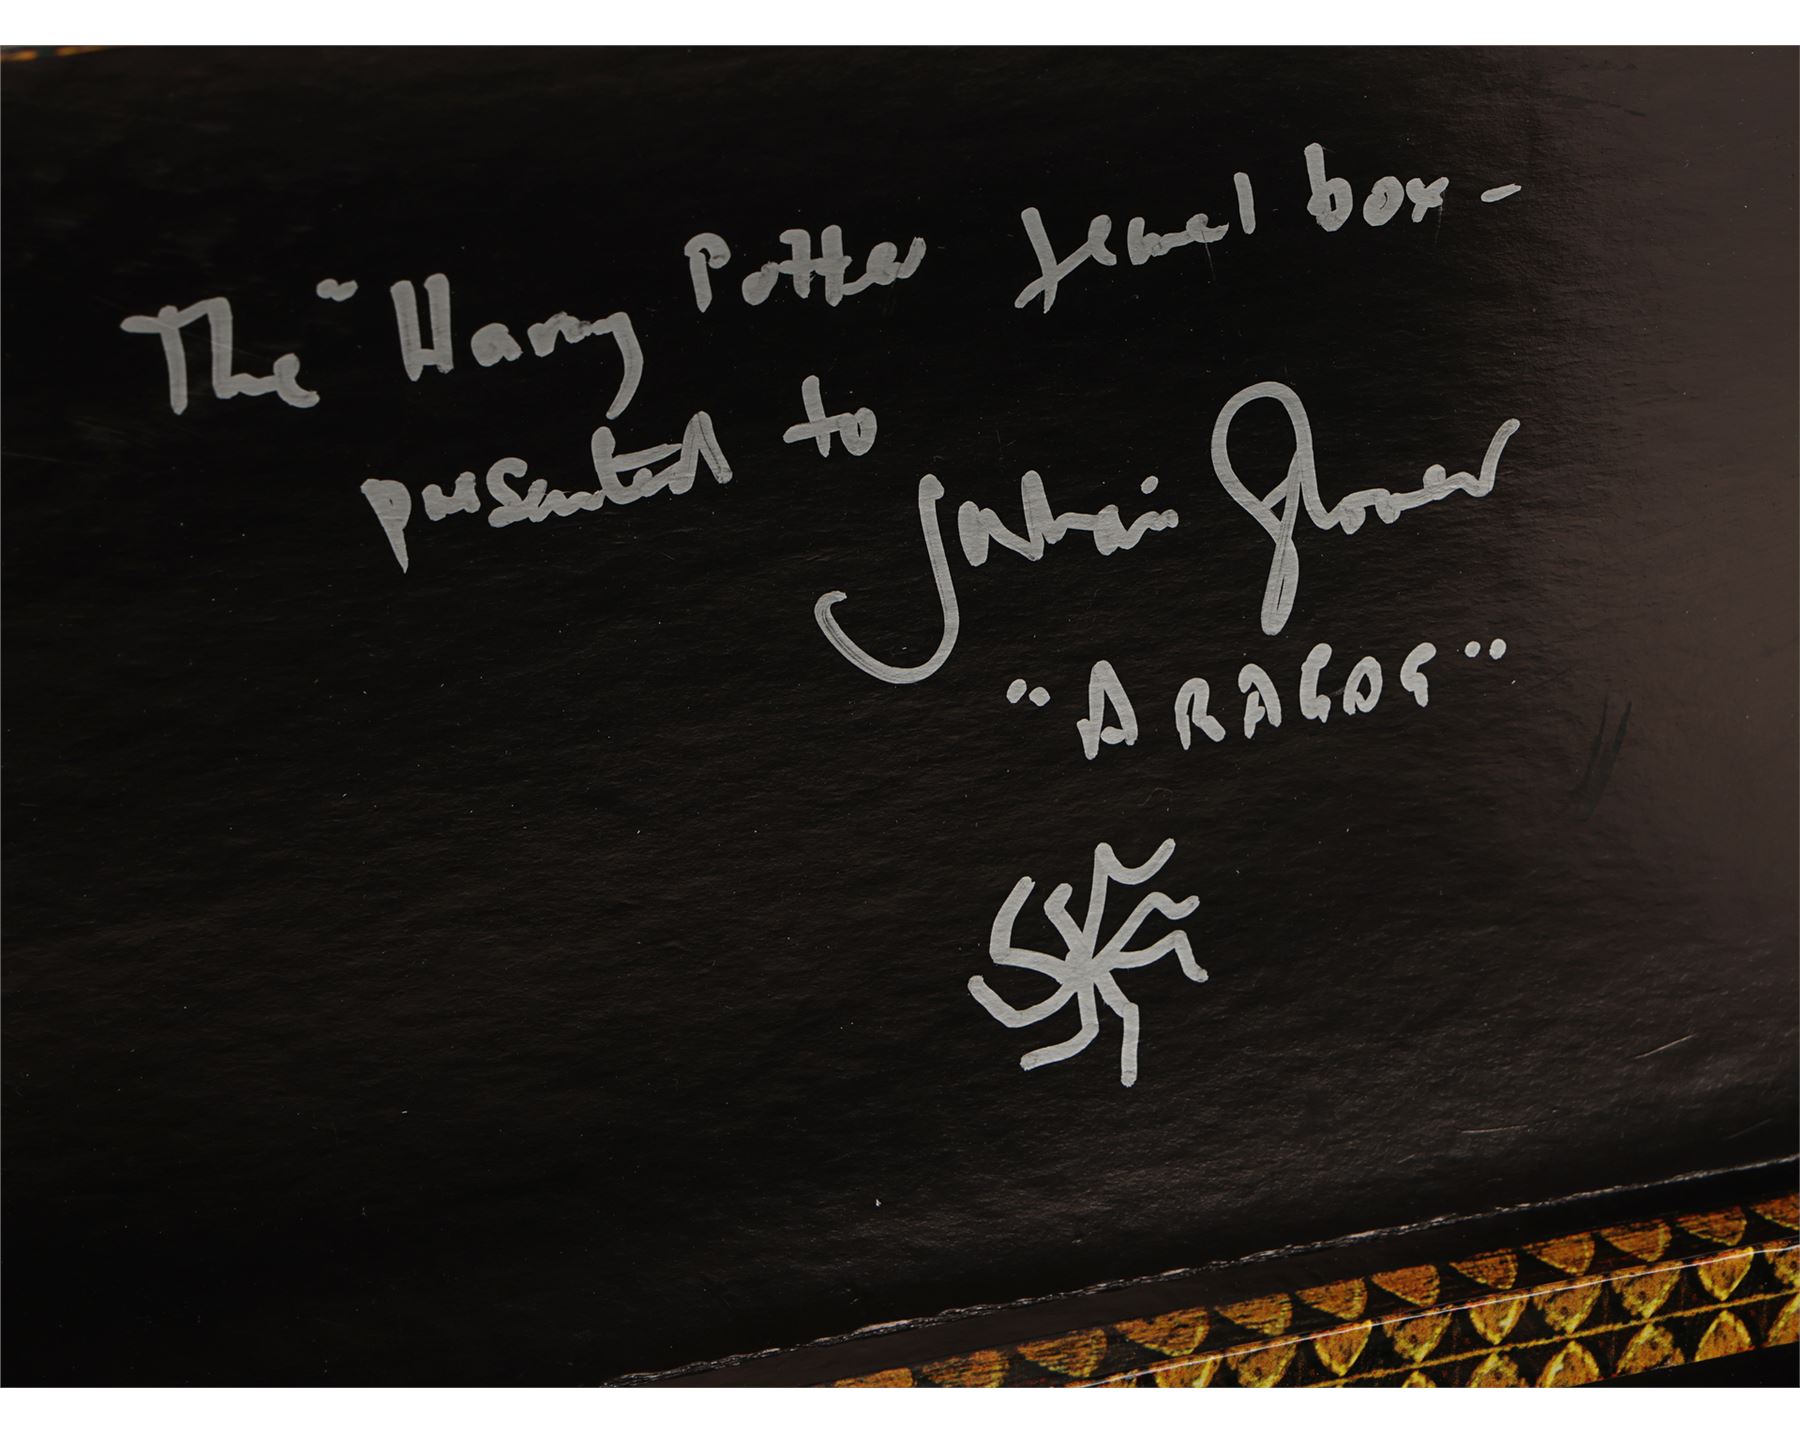 The "Harry Potter Jewel box -
presented to
Julian Glover
"ARAGOG"